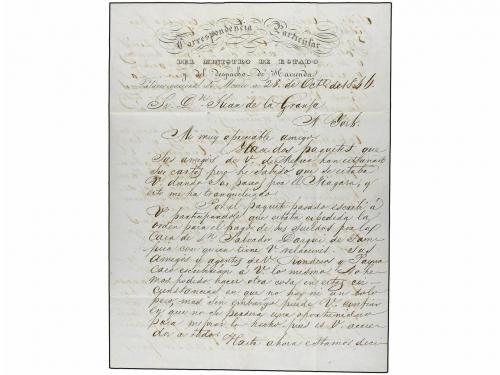 Correspondencia Particular
DEL MINISTRO DE ESTADO
y del despacho de Hacienda
Palacio nacional de Mexico a 28 de Octe de 1844
Sr. Dn Juan de la Granja
N. York.
Mi muy apreciable amigo.
Hace dos paquetes que
sus amigos de V. de Mexico han estrañado
sus cartas, pero he sabido que se estaba
V. dando sus paseos por el Niagara, y
esto me ha tranquilizado.
Por el paquete pasado escribí á
V. participandole que estaba expedida la
orden para el pago de sus sueldos por la
casa de Dn Salvador de Tam
pico con quien tiene V. relaciones. Sus
amigos y agentes de V. y
escribirian á V. lo mismo. No he
mos podido hacer otra cosa, en estas cir
cunstancias en que no hay ni un solo
peso, mas sin embargo puede V. confiar
en que no se perderá una oportunidad
para mejorar lo hecho, pues es V. acree
dor á todo.
Hasta ahora estamos